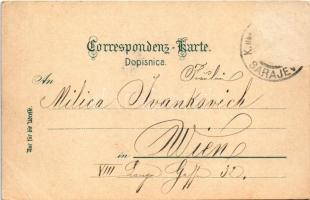 Correspondenz-Karte.
Dopisnica.
SARAJEV
An
Fräulein
Milica Ivankovich
in Wien
VIII Lange Gasse 32.
Nur für die Adresse.